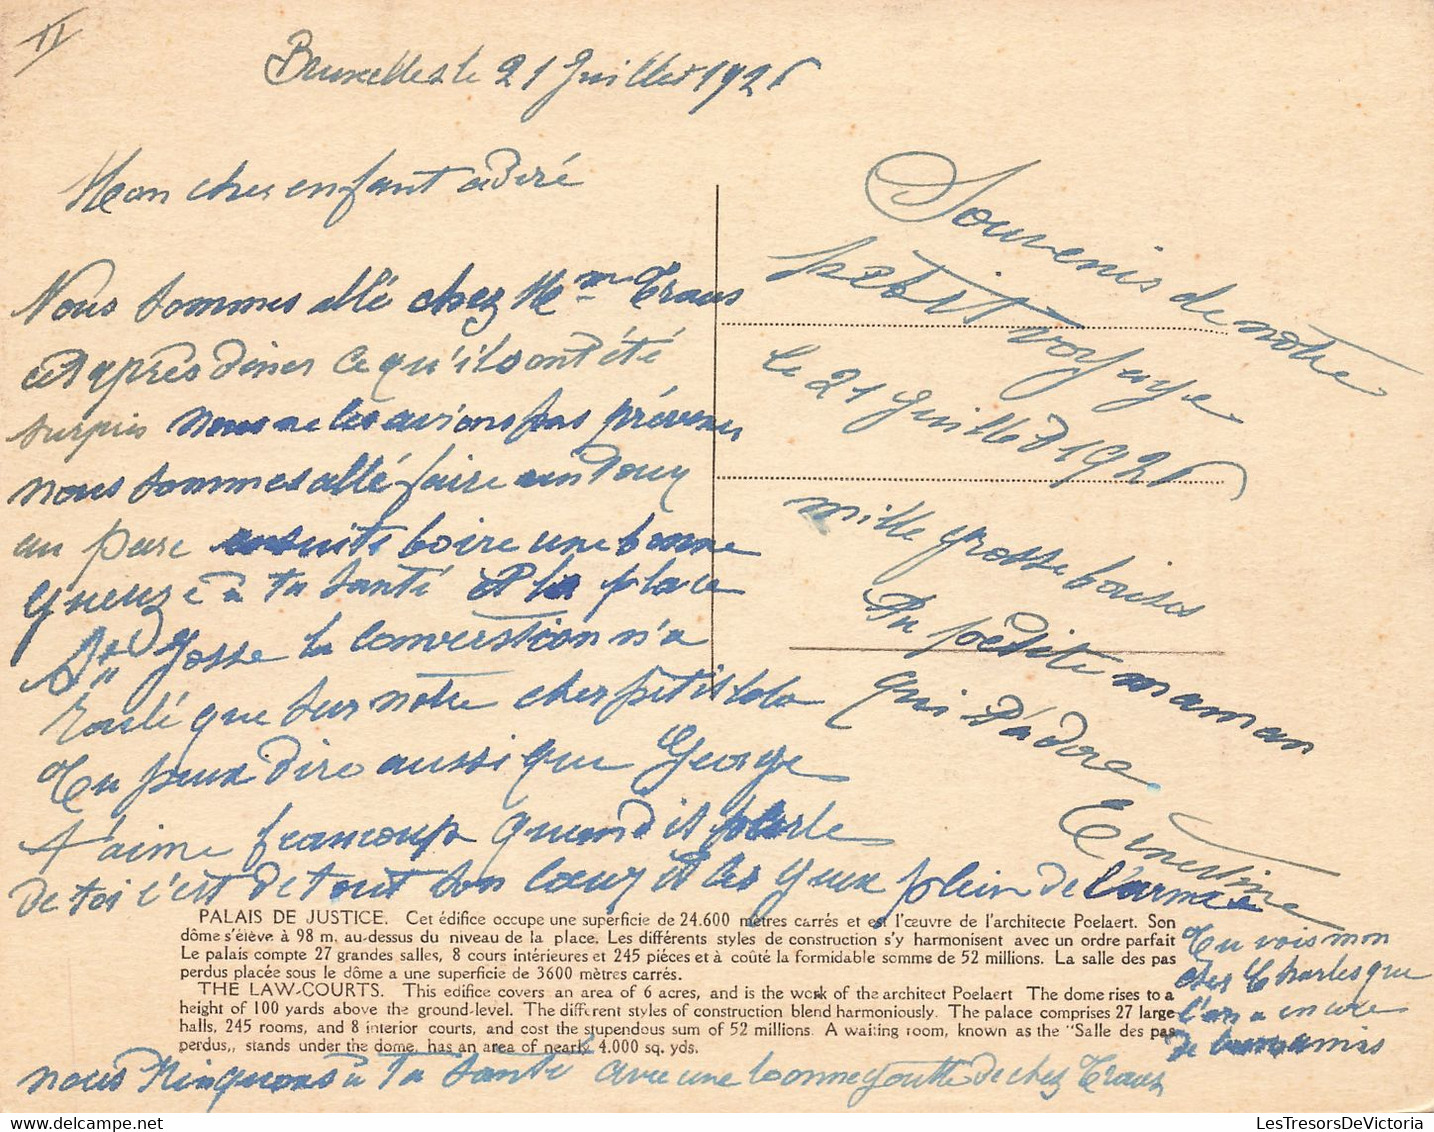 II
Bruxelles le 21 Juillet 1926
Mon cher enfant adoré
Nous sommes allé chez Mme Traus
et après diner ce qu'ils ont été
surpris nous ne les avions pas prévenus
nous sommes allé faire un tour
au parc ensuite boire une bonne
gueuze à ta santé et la place
St Josse la converstion n'a
roulé que sur notre cher petit lolo
Tu peux dire aussi que George
t'aime beaucoup quand il parle
de toi c'est de tout son cœur et les yeux plein de larmes
Tu vois mon
cher Charles que
l'on a encore
de bons amis
nous trinquons à ta santé avec une bonne goutte de chez Traus
Souvenir de notre
petit voyage
le 21 Juillet 1926
mille grosse baises
Ta petite maman
qui t'adore
Ernestine
PALAIS DE JUSTICE. Cet édifice occupe une superficie de 24.600 mètres carrés et est l'œuvre de l'architecte Poelaert. Son
dôme s'élève à 98 m. au-dessus du niveau de la place. Les différents styles de construction s'y harmonisent avec un ordre parfait
Le palais compte 27 grandes salles, 8 cours intérieures et 245 piéces et à coûté la formidable somme de 52 millions. La salle des pas
perdus placée sous le dôme a une superficie de 3600 mètres carrés.
THE LAW-COURTS. This edifice covers an area of 6 acres, and is the work of the architect Poelaert The dome rises to a
height of 100 yards above the ground-level. The different styles of construction blend harmoniously. The palace comprises 27 large
halls, 245 rooms, and 8 interior courts, and cost the stupendous sum of 52 millions. A waiting room, known as the "Salle des pas
perdus,, stands under the dome, has an area of nearly 4.000 sq. yds.
LesTresorsDeVictoria